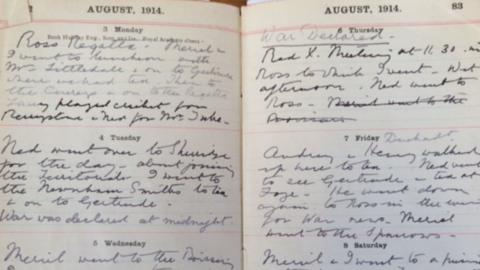 AUGUST, 1914.
3 Monday
Bank Holiday Eng., Scot. and Ire. Royal Academy closes.
Ross Regatta. Meriel &
I went to luncheon with
Mrs Littledale & on to Gertrude
where we had tea. Then to
the & on to the Regatta
played cricket for
Ned for Mr
4 Tuesday
Ned went over to
for the day - about joining
the Territorials I went to
the Newnham Smiths to tea
& on to Gertrude.
War was declared at midnight.
5 Wednesday
Meriel went to the
AUGUST, 1914.
83
6 Thursday
War Declared.
Red X. Meeting at 11.30 in
Ross to I went - Wet
afternoon. Ned went to
Ross - Meriel went to the
7 Friday
Audrey & Henry walked
up here to tea. Ned went
to see Gertrude & tea at
He went down
again to Ross in the
for War news. Meriel
went to the Sparrows.
8 Saturday
Meriel & I went to a